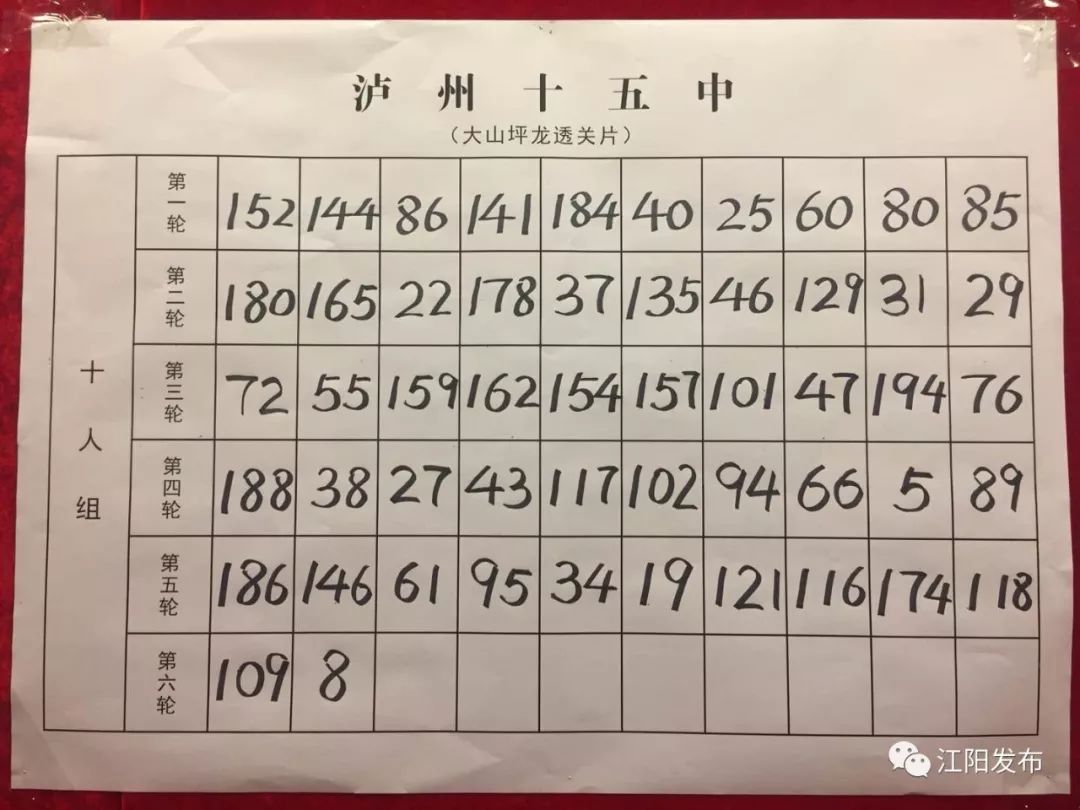 泸州十五中
（大山坪龙透关片）
十人组
第一轮 152 144 86 141 184 40 25 60 80 85
第二轮 180 165 22 178 37 135 46 129 31 29
第三轮 72 55 159 162 154 157 101 47 194 76
第四轮 188 38 27 43 117 102 94 66 5 89
第五轮 186 146 61 95 34 19 121 116 174 118
第六轮 109 8
江阳发布